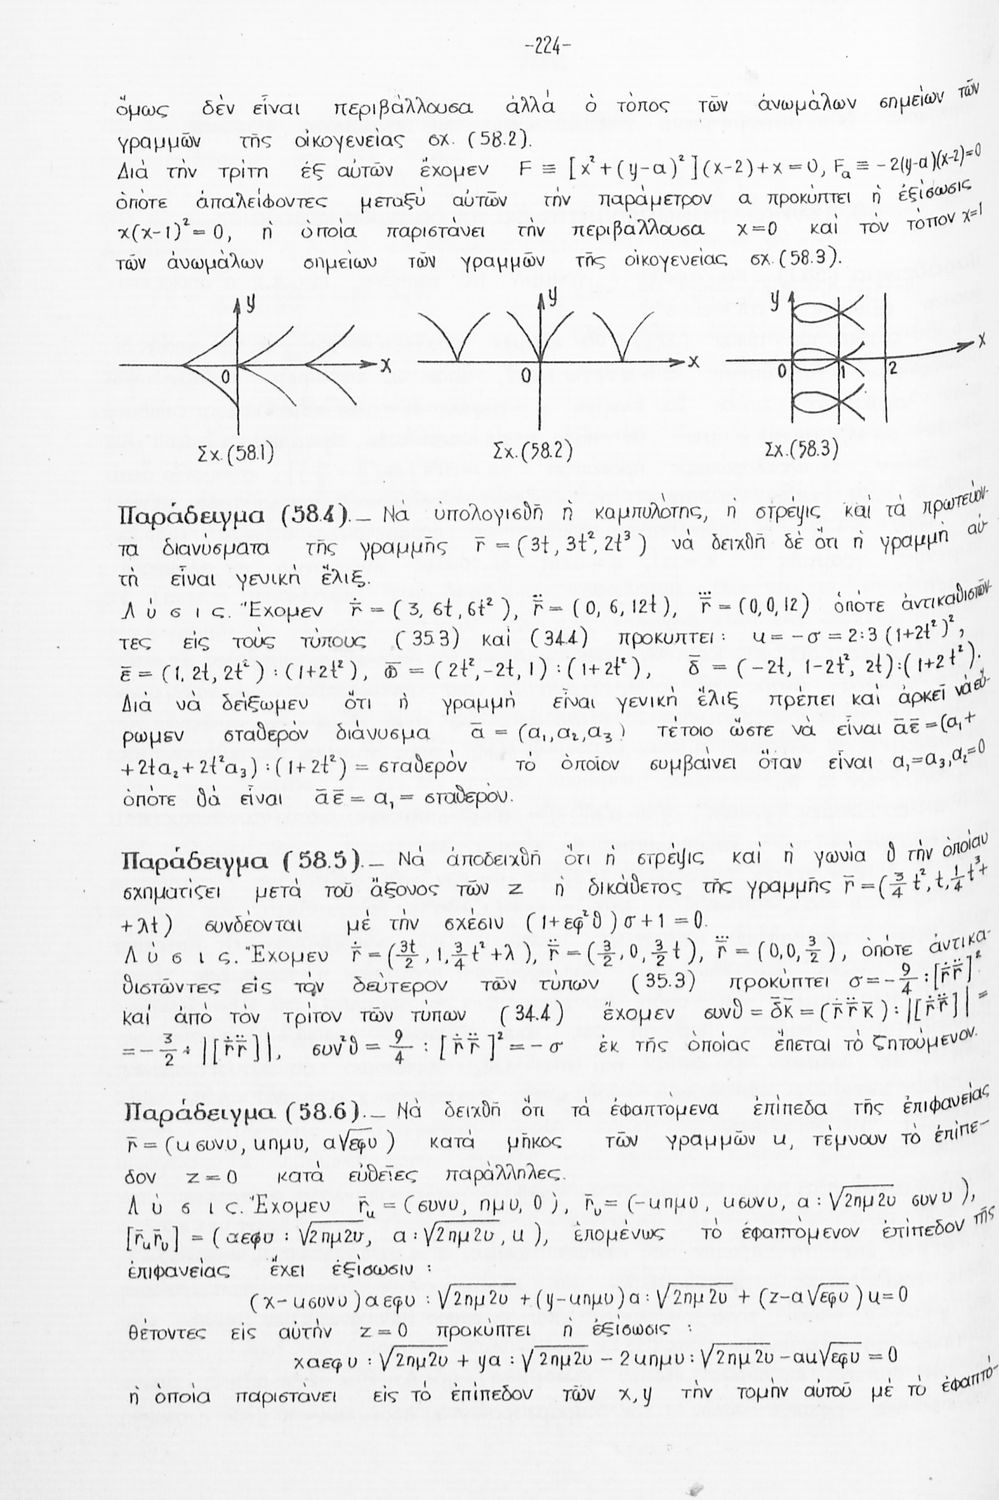 -224-
ὅμως δὲν εἶναι περιβάλλουσα ἀλλά ὁ τόπος τῶν ἀνωμάλων σημείων τῶν
γραμμῶν τῆς οἰκογενείας σχ. (58.2).
Διά τὴν τρίτη ἐξ αὐτῶν ἔχομεν F ≡ [x²+(y-α)²](x-2)+x=0, Fₐ ≡ -2(y-α)(x-2)=0
ὁπότε ἀπαλείφοντες μεταξύ αὐτῶν τὴν παράμετρον α προκύπτει ἡ ἐξίσωσις
x(x-1)²=0, ἡ ὁποία παριστάνει τὴν περιβάλλουσα x=0 καί τὸν τόπον x=1
τῶν ἀνωμάλων σημείων τῶν γραμμῶν τῆς οἰκογενείας σχ.(58.3).
y y y
x x x
0 0 0 1 2
Σx.(58.1) Σx.(58.2) Σx.(58.3)
Παράδειγμα (58.4)._ Νά ὑπολογισθῆ ἡ καμπυλότης, ἡ στρέψις καί τά πρωτεύον-
τα διανύσματα τῆς γραμμῆς r̄ = (3t, 3t², 2t³) νά δειχθῆ δέ ὅτι ἡ γραμμή αὐ-
τή εἶναι γενική ἕλιξ.
Λ ύ σ ι ς. Ἔχομεν r̄̇ = (3, 6t, 6t²), r̄̈ = (0, 6, 12t), r̄⃛ = (0,0,12) ὁπότε ἀντικαθιστῶν-
τες εἰς τούς τύπους (35.3) καί (34.4) προκυπτει: κ = -σ = 2:3(1+2t²)²,
ε̄ = (1, 2t, 2t²):(1+2t²), ω̄ = (2t², -2t, 1):(1+2t²), δ̄ = (-2t, 1-2t², 2t):(1+2t²).
Διά νά δείξωμεν ὅτι ἡ γραμμή εἶναι γενική ἕλιξ πρέπει καί ἀρκεῖ νά εὕ-
ρωμεν σταθερόν διάνυσμα ᾱ = (α₁,α₂,α₃) τέτοιο ὥστε νά εἶναι ᾱε̄ = (α₁+
+2tα₂+2t²α₃):(1+2t²) = σταθερόν τό ὁποῖον συμβαίνει ὅταν εἶναι α₁=α₃,α₂=0
ὁπότε θά εἶναι ᾱε̄ = α₁ = σταθερόν.
Παράδειγμα (58.5)._ Νά ἀποδειχθῆ ὅτι ἡ στρέψις καί ἡ γωνία θ τήν ὁποίαν
σχηματίζει μετά τοῦ ἄξονος τῶν z ἡ δικάθετος τῆς γραμμῆς r̄ = (3/4 t², t, 1/4 t³+
+λt) συνδέονται μέ τήν σχέσιν (1+εφ²θ)σ+1=0.
Λ ύ σ ι ς. Ἔχομεν r̄̇ = (3t/2, 1, 3/4 t²+λ), r̄̈ = (3/2, 0, 3/2 t), r̄⃛ = (0,0,3/2), ὁπότε ἀντικα-
θιστῶντες εἰς τόν δεύτερον τῶν τύπων (35.3) προκύπτει σ = -9/4 : [r̄̇ r̄̈]²
καί ἀπό τόν τρίτον τῶν τύπων (34.4) ἔχομεν συνθ = δ̄k̄ = (r̄̇ r̄̈ k̄):|[r̄̇ r̄̈]| =
= -3/2 : |[r̄̇ r̄̈]|, συν²θ = 9/4 : [r̄̇ r̄̈]² = -σ ἐκ τῆς ὁποίας ἕπεται τό ζητούμενον.
Παράδειγμα (58.6)._ Νά δειχθῆ ὅτι τά ἐφαπτόμενα ἐπίπεδα τῆς ἐπιφανείας
r̄ = (u συνυ, uημυ, α√εφυ) κατά μῆκος τῶν γραμμῶν u, τέμνουν τό ἐπίπε-
δον z=0 κατά εὐθεῖες παράλληλες.
Λ ύ σ ι ς. Ἔχομεν r̄ᵤ = (συνυ, ημυ, 0), r̄ᵥ = (-uημυ, uσυνυ, α:√2ημ2υ συνυ),
[r̄ᵤr̄ᵥ] = (αεφυ:√2ημ2υ, α:√2ημ2υ, u), ἑπομένως τό ἐφαπτόμενον ἐπίπεδον τῆς
ἐπιφανείας ἔχει ἐξίσωσιν :
(x-uσυνυ)αεφυ:√2ημ2υ + (y-uημυ)α:√2ημ2υ + (z-α√εφυ)u=0
θέτοντες εἰς αὐτήν z=0 προκύπτει ἡ ἐξίσωσις :
xαεφυ:√2ημ2υ + yα:√2ημ2υ - 2uημυ:√2ημ2υ - αu√εφυ = 0
ἡ ὁποία παριστάνει εἰς τό ἐπίπεδον τῶν x,y τήν τομήν αὐτοῦ μέ τό ἐφαπτό-